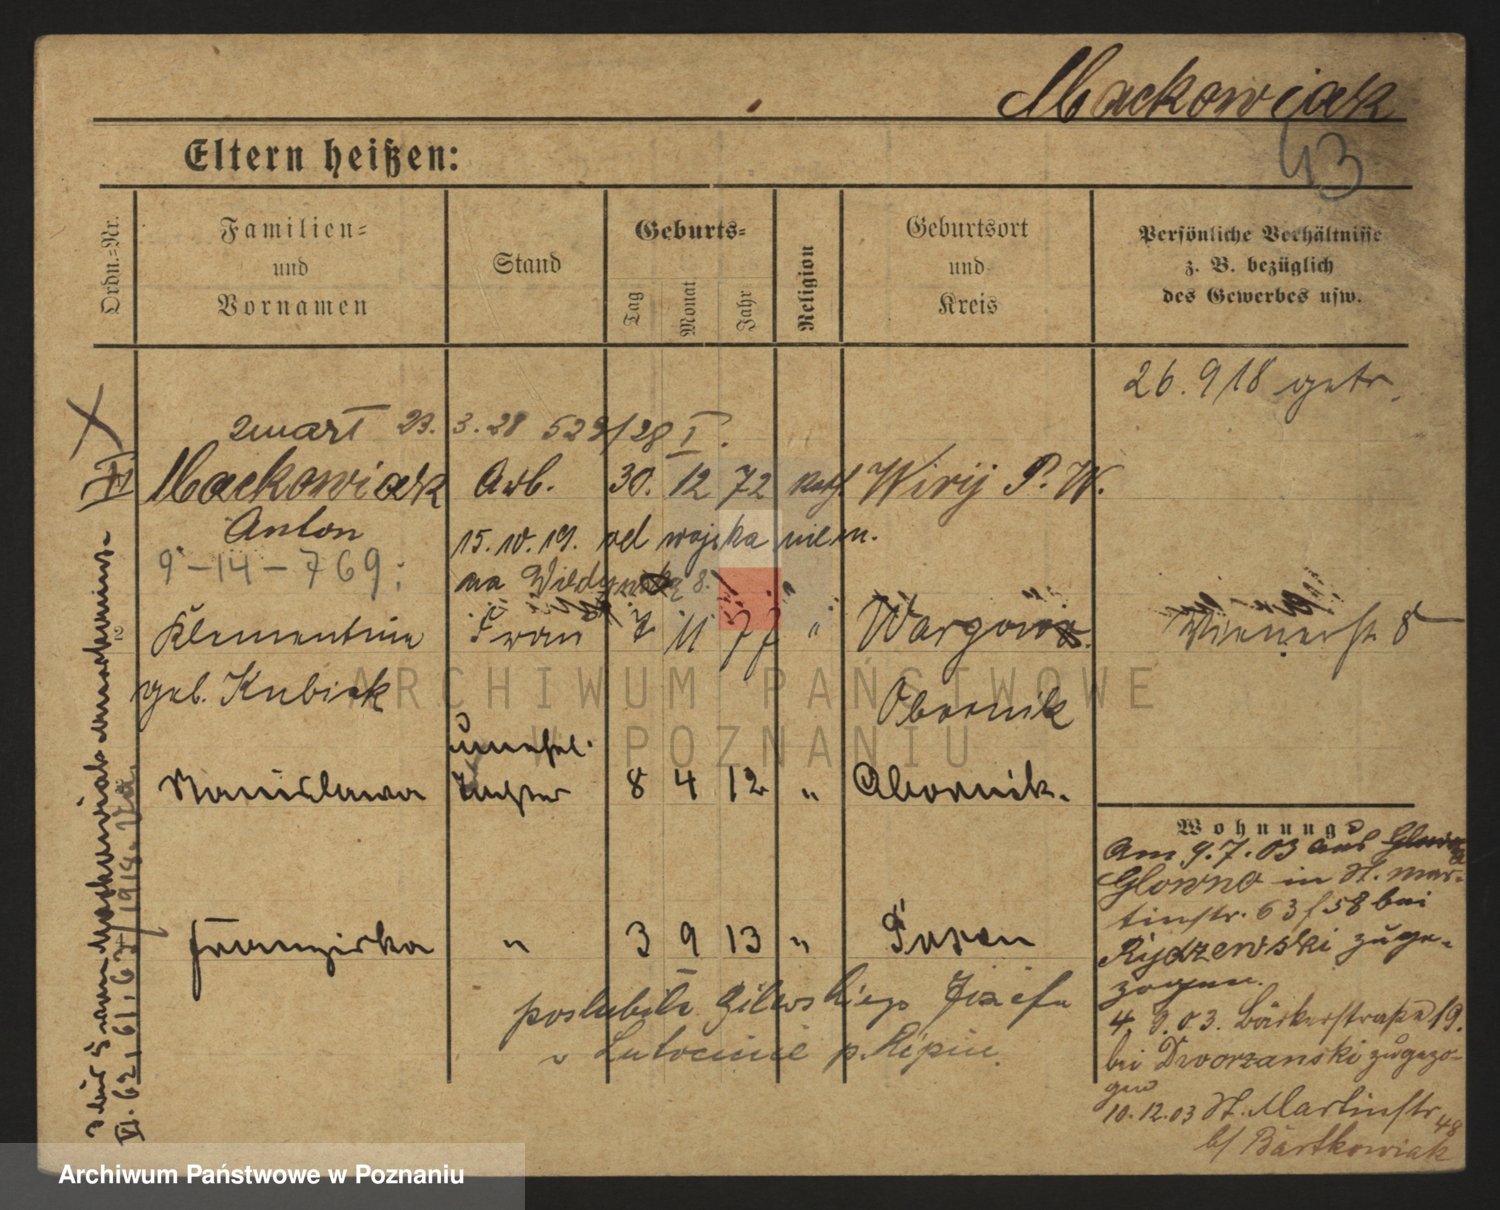 Mackowiak
43
Eltern heißen:
Ordn.-Nr.
Familien-
und
Vornamen
Stand
Geburts-
Tag
Monat
Jahr
Religion
Geburtsort
und
Kreis
Persönliche Verhältnisse
z. B. bezüglich
des Gewerbes usw.
26.9 18 getr.
zmarł 23. 3. 28 529/28 I.
Mackowiak Arb. 30. 12 72 kath Wirij P. W.
Anton
15. 10. 19. od wojska niem.
9-14-769
na
Klementine 11 77 "
geb. Kubiak
Wienerstr 8
Obornik
unehel.
Stanislawa Tochter 8 4 12 " Obornik.
Franziska " 3 9 13 " Posen
poslubila Józefa
w Lutocinie p. Rypin.
Wohnung
Am 9.7.03 aus
Glowno in St. Mar-
tinstr. 63/58 bei
Rydzewski zuge-
zogen.
4. 9. 03. Bäckerstraße 19.
bei Dworzanski zugezo-
gen
10.12.03 St. Martinstr 48
b/ Bartkowiak
VI. 62, 61, 63/1918.
ARCHIWUM PAŃSTWOWE
W POZNANIU
Archiwum Państwowe w Poznaniu